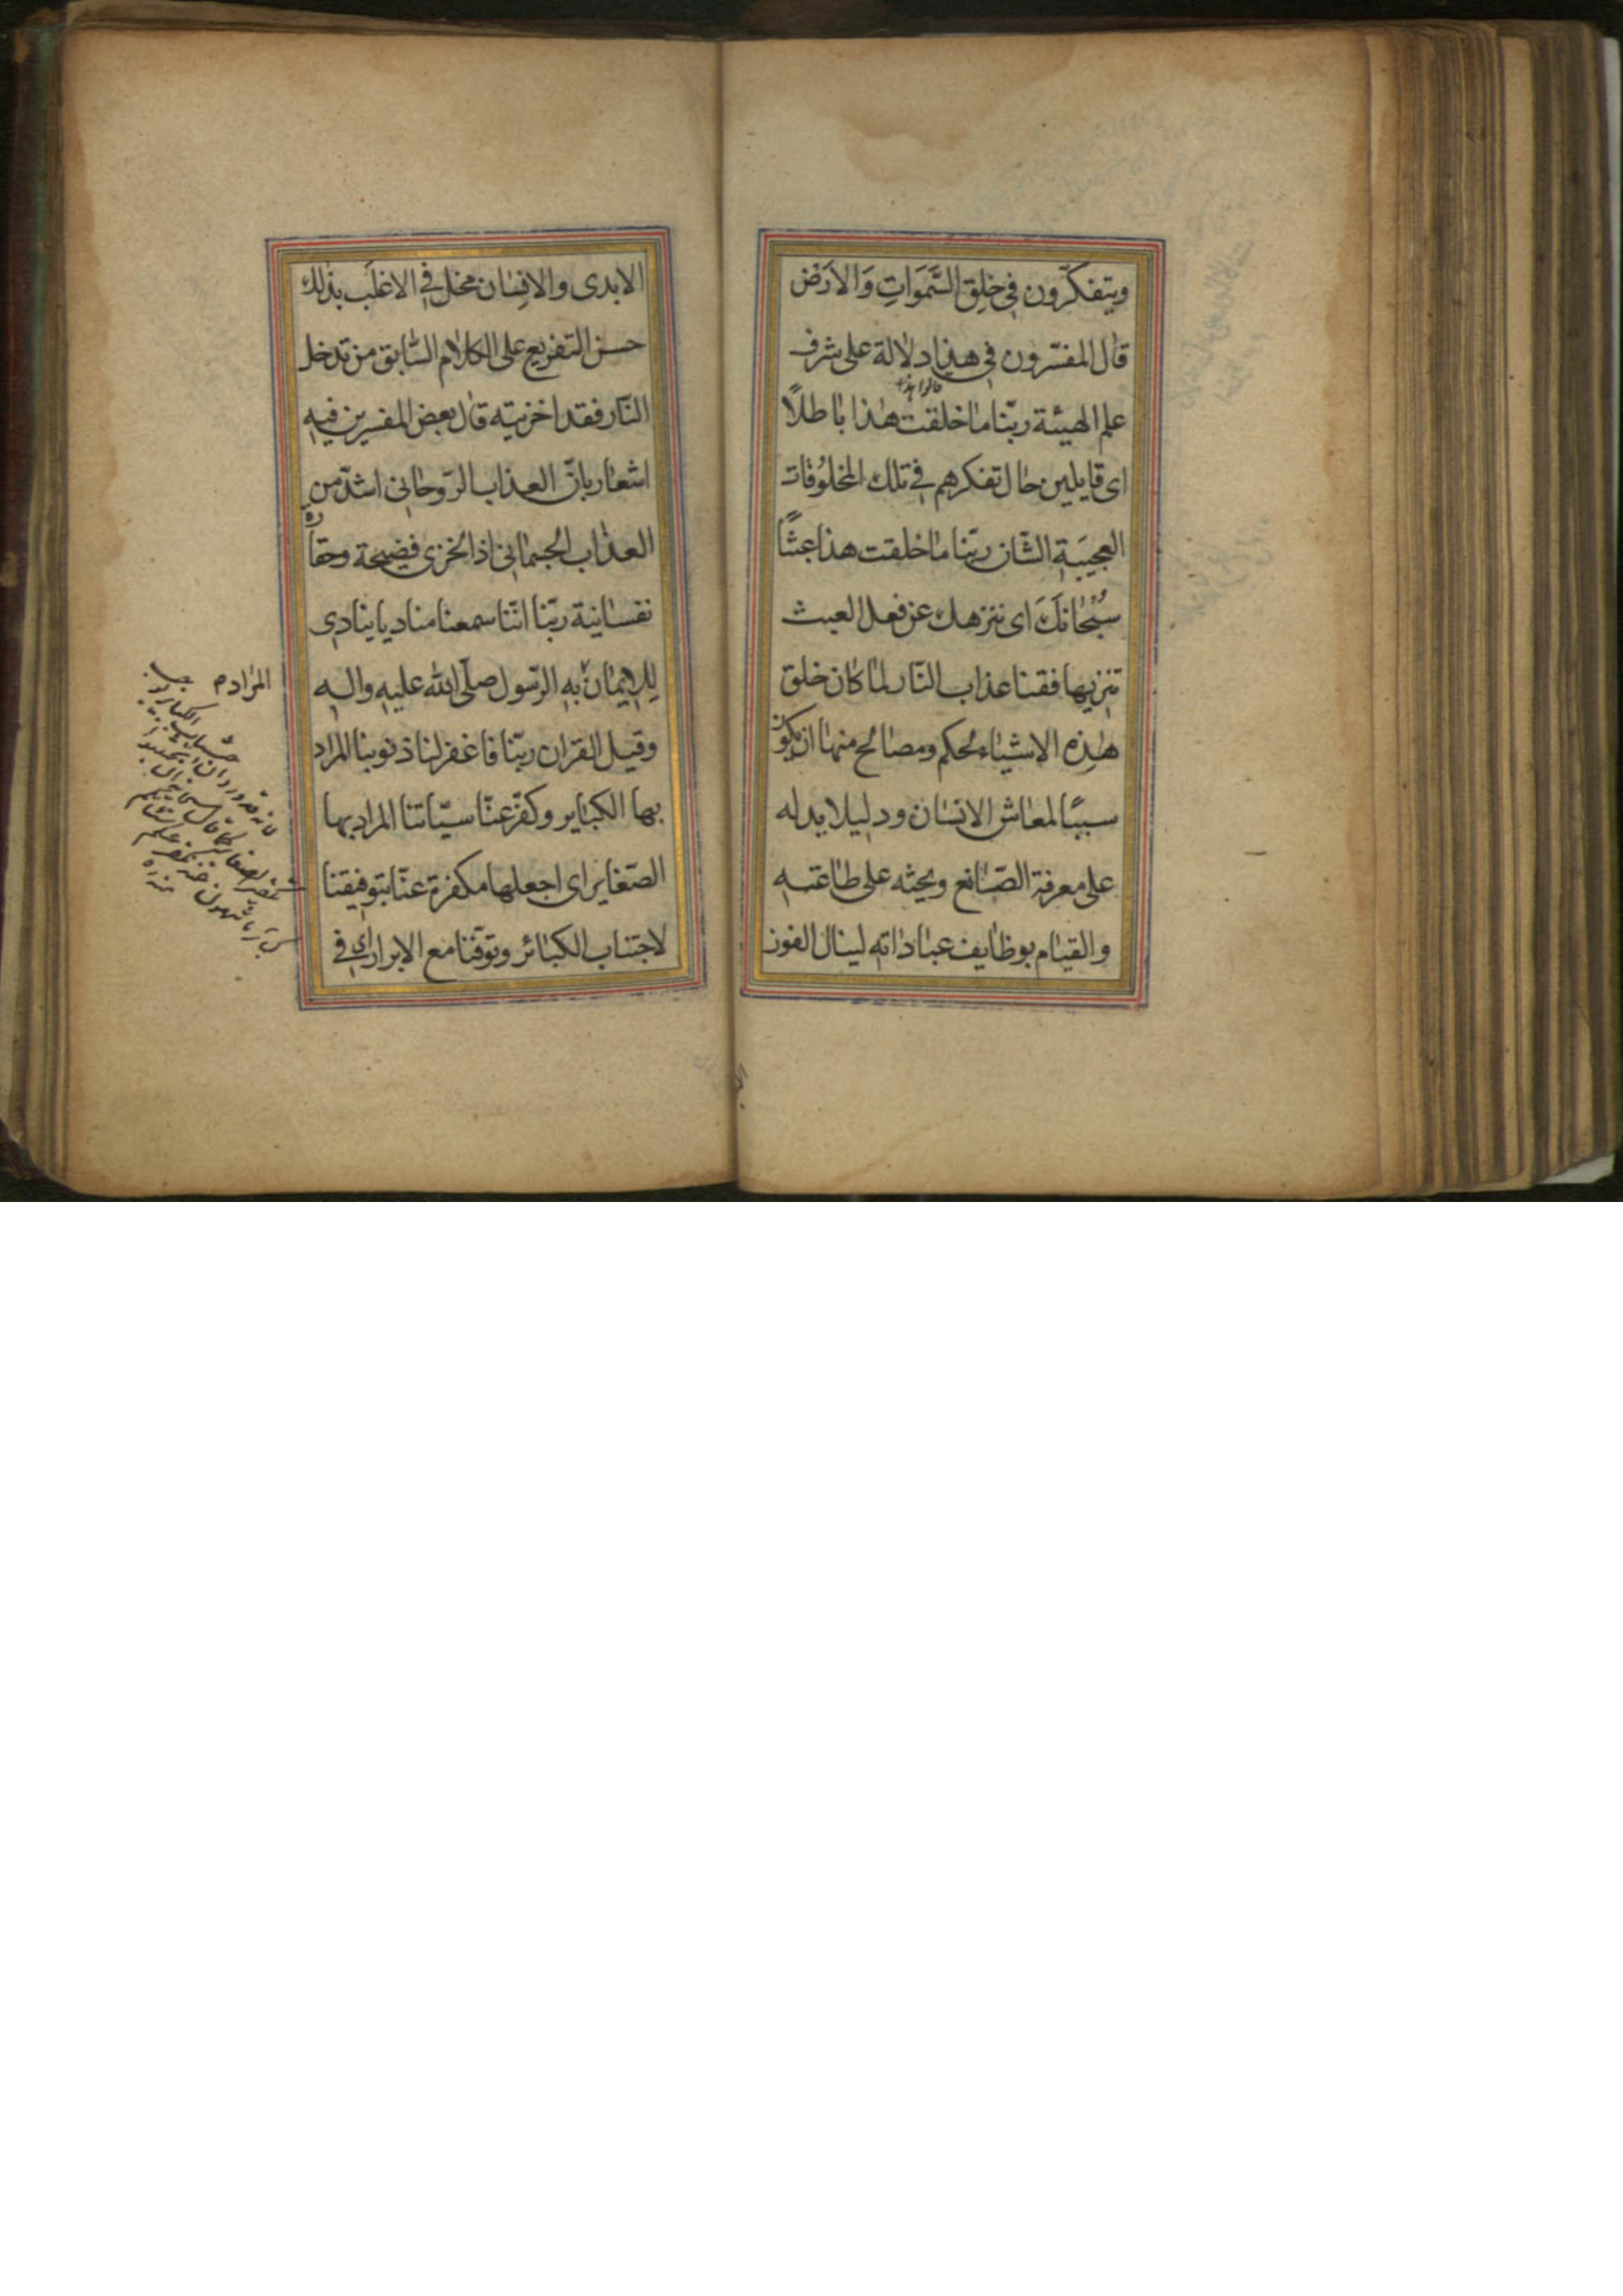 ويتفكّرون في خلق السَّمَوَاتِ وَالاَرَض
قال المفسّرون في هذا دلالة على شرف
علم الهيئة ربّنا ما خلقت هذا باطلاً
اى قايلين حال تفكرهم في تلك المخلوُقات
العجيبَة الشّان ربّنا ما خلقت هذا عبثًا
سُبْحَانَكَ اى ننزهك عن فعل العبث
تنزيها فقنا عذاب النّار لما كان خلق
هذه الاشياء لحكم ومصالح منها ان يكون
سببًا لمعاش الانسان ودليلا يدله
على معرفة الصّانع ويحثه على طاعته
والقيام بوظايف عباداته لينال الفوز
الابدى والانسان مخل في الاغلب بذلك
حسن التفريع على الكلام السّابق من تدخل
النّار فقد اخزيته قال بعض المفسرين فيه
اشعار بانّ العذاب الرّوحانى اشدّ من
العذاب الجسمانى اذ الخزى فضيحة وحقارة
نفسانية ربّنا انّنا سمعنا مناديا ينادى
للايمان به الرّسول صلّى الله عليه واله
وقيل القران ربّنا فاغفر لنا ذنوبنا المراد
بها الكباير وكفّر عنّا سيّاتنا المراد بها
الصّغاير اى اجعلها مكفرة عنّا بتوفيقنا
لاجتناب الكبائر وتوفّنا مع الابرار اى في
المراد م